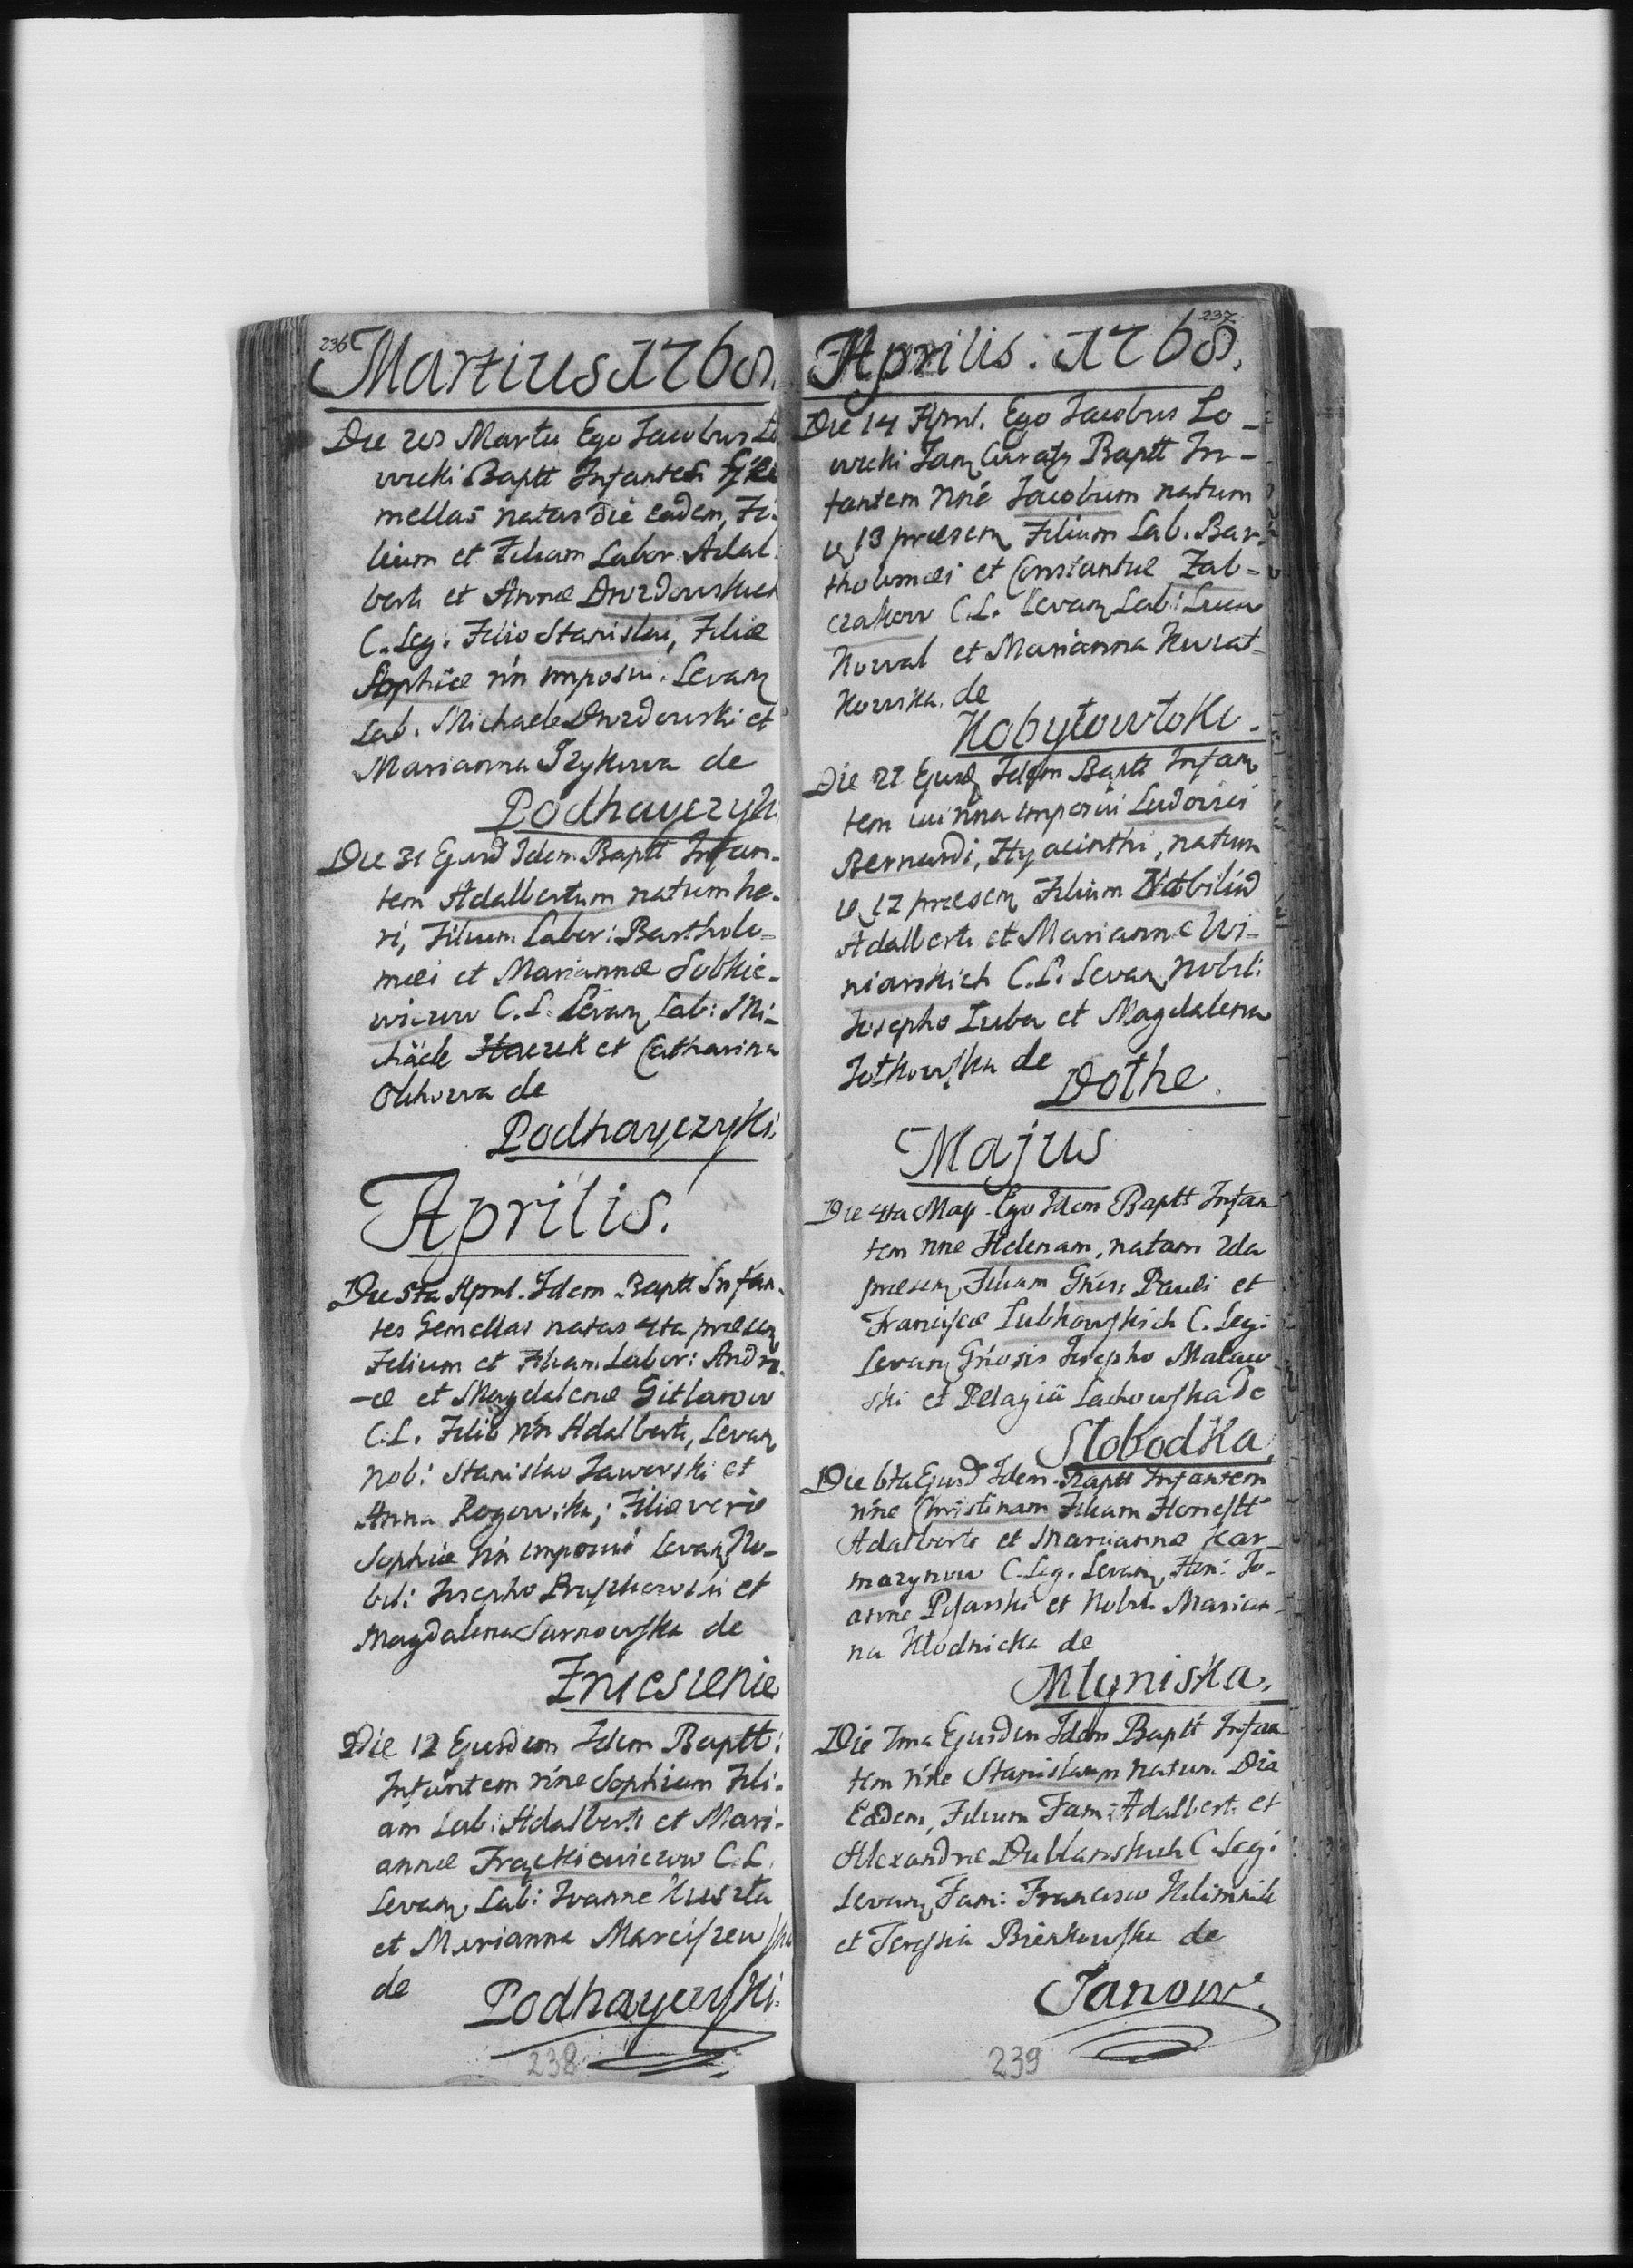 236
Martius 1768.
Die Martii Ego Jacobus
wicki Baptt Infantes
mellas natas die eadem, Fi-
lium et Filiam Labor Adal-
berti et Annæ Drozdowskich
C. Leg: Filio Stanislai, Filiæ
Sophiæ nn imposui. Levan
Lab. Michaele Drozdowski et
Marianna de
Podhayczyki
Die 31 Ejusd Idem Baptt Infan-
tem Adalbertum natum he-
ri, Filium Labor: Bartholo-
mæi et Mariannæ Sobkie-
wiczow C. L. Levan Lab: Mi-
chäele et Catharina
de
Podhayczyki.
Aprilis.
Die 5ta Apnl. Idem Baptt Infan-
tes Gemellas natas 4ta præsen
Filium et Filiam Labor: Andre-
-æ et Magdalenæ Gitlarow
C. L. Filio nn Adalberti, Levan
Nob: Stanislao Jaworski et
Anna Rogowska; Filiæ vero
Sophiæ nn imposui Levan No-
bil: Josepho et
Magdalena Sarnowska de
Zniesienie
Die 12 Ejusdem Idem Baptt:
Infantem nne Sophiam Fili-
am Lab: Adalberti et Mari-
annæ Frąckiewiczow C. L.
Levan Lab: Ioanne
et Marianna Marciszewska
de
Podhayczyki.
238
237
Aprilis. 1768.
Die 14 Apnl. Ego Jacobus Lo-
wicki Tanq Curatq Baptt In-
fantem nne Jacobum natum
13 præsen Filium Lab. Bar-
tholomæi et Constantiæ Zab-
czakow C. L. Levan Lab: Luca
Kowal et Marianna Kurat-
kowska de
Kobyłowłoki.
Die 27 Ejusd Idem Baptt Infan
tem cui nna imposui Ludovici
Bernardi, Hyacinthi, natum
17 præsen Filium Nobilium
Adalberti et Mariannæ Wi-
niarskich C. L. Levan Nobil:
Josepho Luba et Magdalena
de
Dołhe.
Majus
Die 4ta Maji Ego Idem Baptt Infan
tem nne Helenam, natam 2da
præsen Filiam Gnosi Pauli et
Franciscæ Lubkowskich C. Leg:
Levan Gnosis Josepho Malaw-
ski et Pelagia Lachowska de
Słobodka.
Die 6ta Ejusd Idem Baptt Infantem
nne Christinam Filiam Honestt
Adalberti et Mariannæ Kar-
marynow C. Leg. Levan Hon: Jo-
anne Pisarski et Nobil. Marian-
na Kłodnicka de
Młyniska.
Die 7ma Ejusdem Idem Baptt Infan
tem nne Stanislaum natum Die
Eadem, Filium Fam: Adalberti et
Alexandræ Dublanskich C. Leg:
Levan Fam: Francisco Klimnik
et Teressia Bienkowska de
Janow.
239